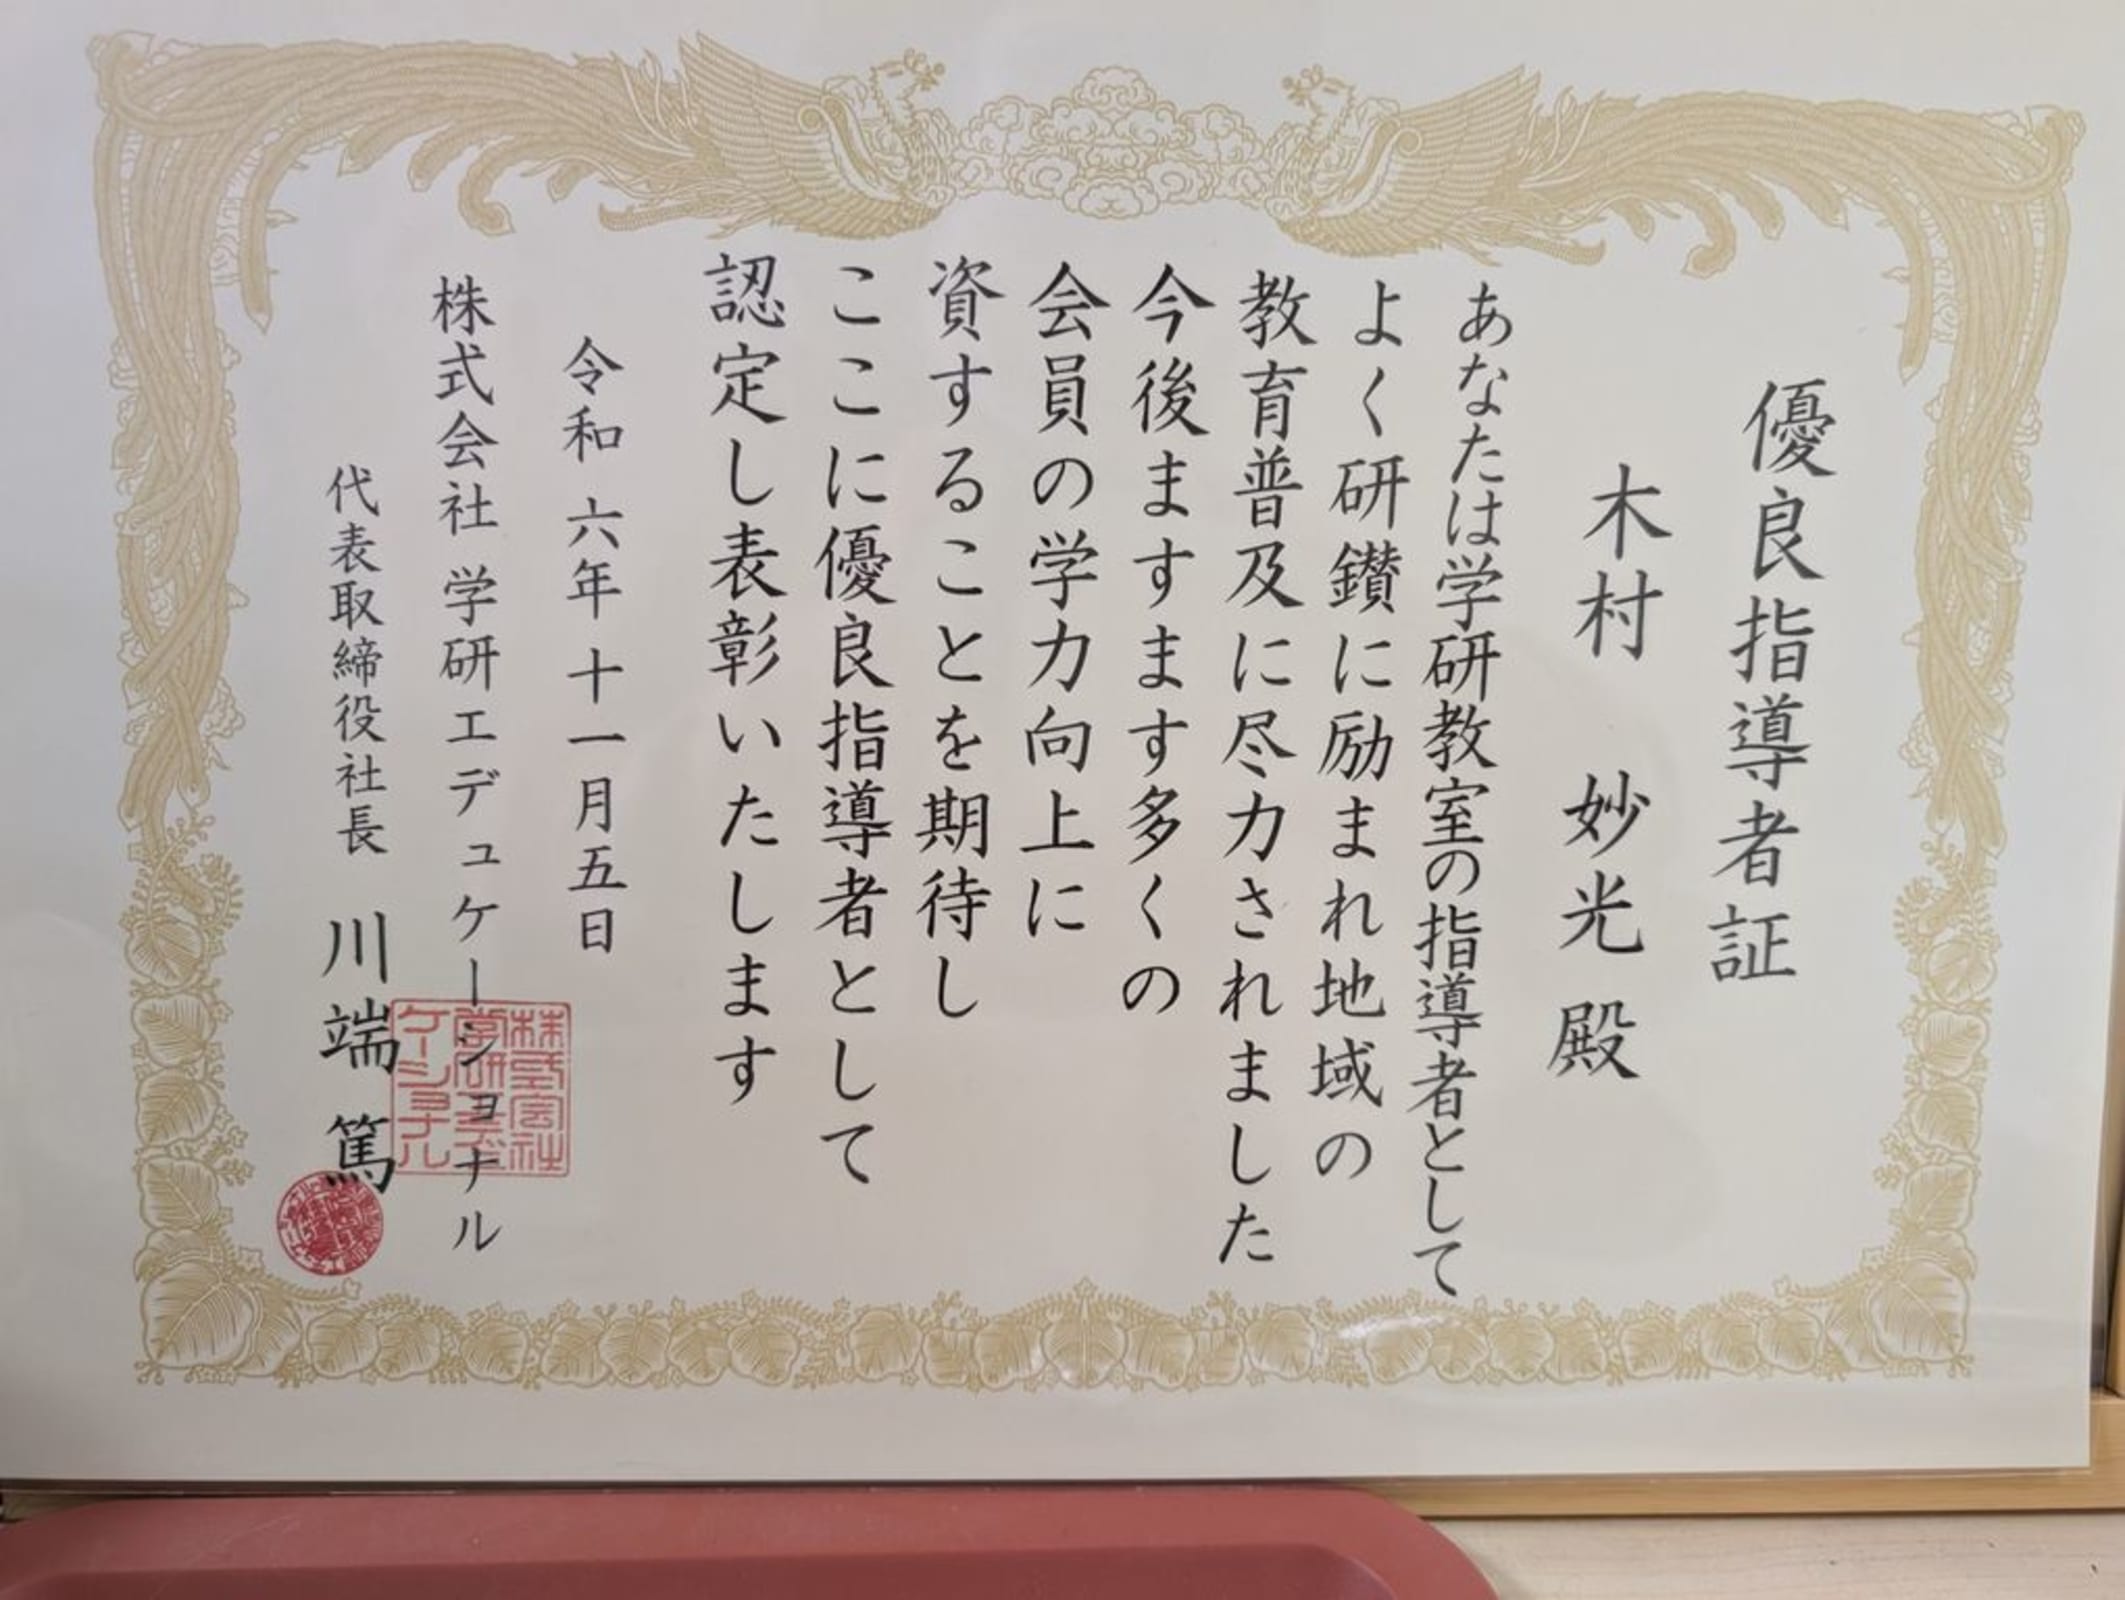 優良指導者証
木村 妙光 殿
あなたは学研教室の指導者として
よく研鑚に励まれ地域の
教育普及に尽力されました
今後ますます多くの
会員の学力向上に
資することを期待し
ここに優良指導者として
認定し表彰いたします
令和六年十一月五日
株式会社 学研エデュケーショナル
代表取締役社長 川端 篤
株式会社
学研エデュ
ケーショナル